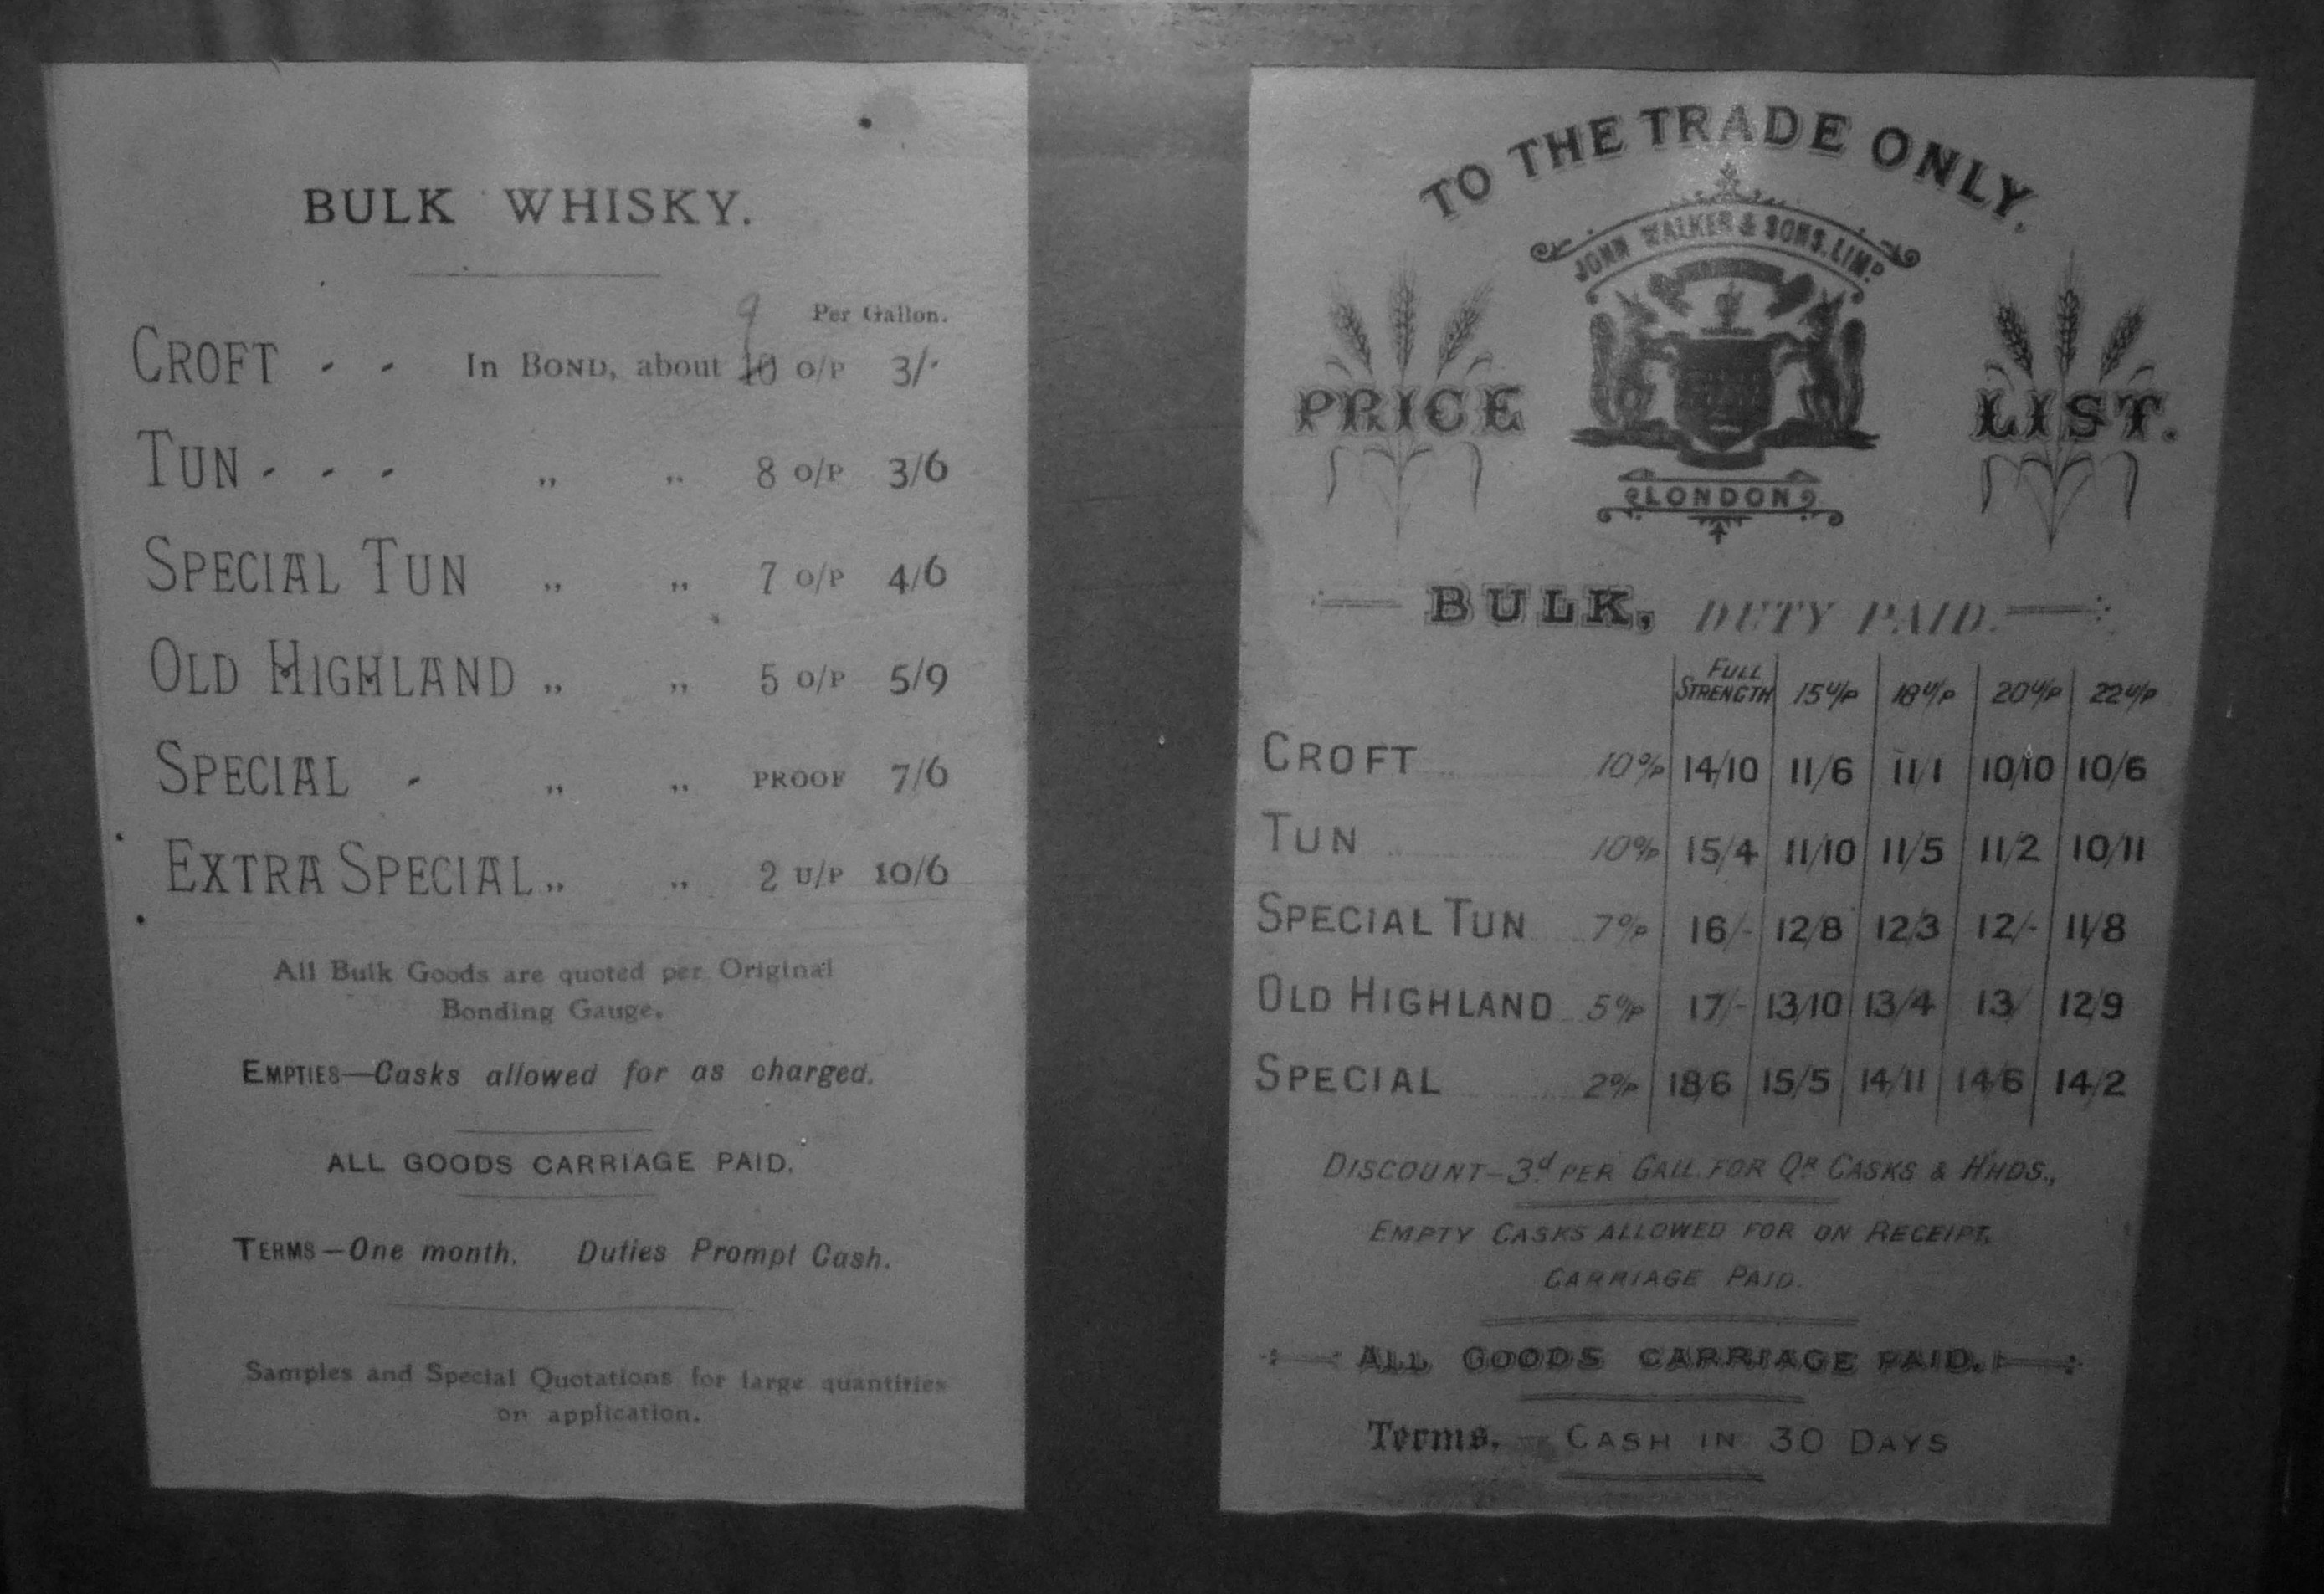 BULK WHISKY.
Per Gallon.
9
CROFT - - In BOND, about 10 O/P 3/-
TUN - - - ,, ,, 8 O/P 3/6
SPECIAL TUN ,, ,, 7 O/P 4/6
OLD HIGHLAND ,, ,, 5 O/P 5/9
SPECIAL - ,, ,, PROOF 7/6
EXTRA SPECIAL ,, ,, 2 U/P 10/6
All Bulk Goods are quoted per Original
Bonding Gauge.
EMPTIES—Casks allowed for as charged.
ALL GOODS CARRIAGE PAID.
TERMS—One month. Duties Prompt Cash.
Samples and Special Quotations for large quantities
on application.
TO THE TRADE ONLY.
JOHN WALKER & SONS, LIMD
PRICE LIST.
LONDON
BULK, DUTY PAID.
FULL
STRENGTH 15 U/P 18 U/P 20 U/P 22 U/P
CROFT 10 O/P 14/10 11/6 11/1 10/10 10/6
TUN 10 O/P 15/4 11/10 11/5 11/2 10/11
SPECIAL TUN 7 O/P 16/- 12/8 12/3 12/- 11/8
OLD HIGHLAND 5 O/P 17/- 13/10 13/4 13/ 12/9
SPECIAL 2 O/P 18/6 15/5 14/11 14/6 14/2
DISCOUNT—3d PER GALL. FOR QR CASKS & H'HDS.,
EMPTY CASKS ALLOWED FOR ON RECEIPT,
CARRIAGE PAID.
ALL GOODS CARRIAGE PAID.
Terms. — CASH IN 30 DAYS